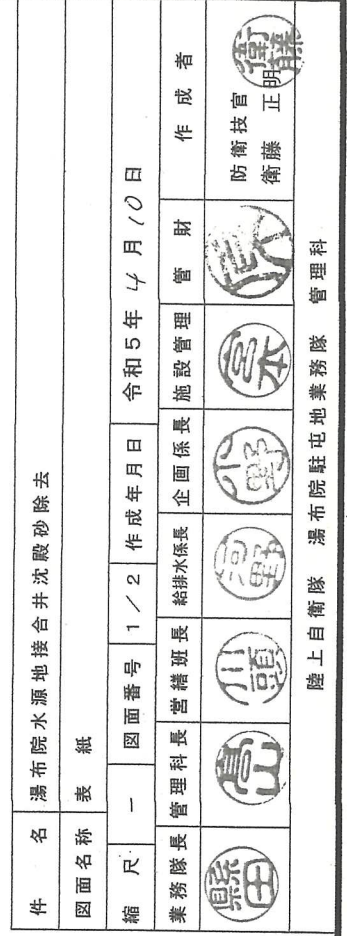 件 名 湯布院水源地接合井沈殿砂除去
図面名称 表 紙
縮 尺 － 図面番号 1／2 作成年月日 令和5年 4月10日
業務隊長 管理科長 営繕班長 給排水係長 企画係長 施設管理 管 財 作 成 者
縣田
河野
小野
宮本
防衛技官
衛藤 正明
衛藤
陸上自衛隊 湯布院駐屯地業務隊 管理科